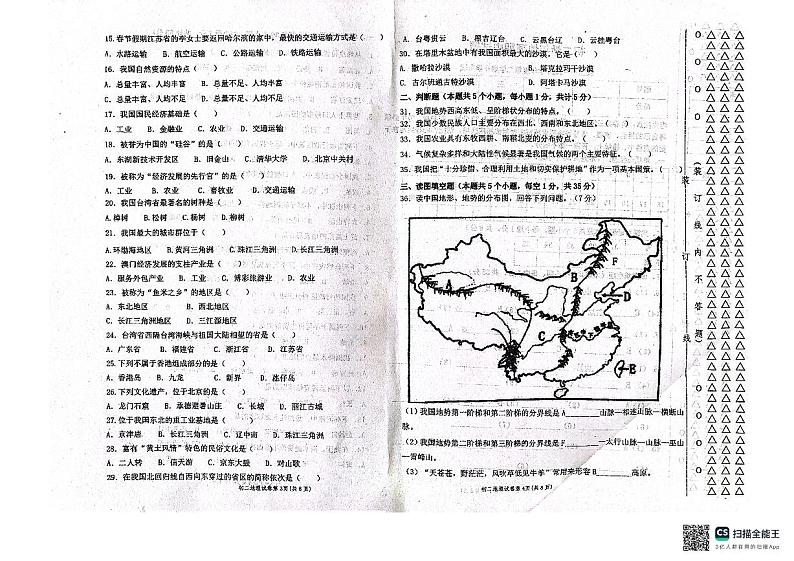 15.春节假期江苏省的李女士要返回哈尔滨的家中，最快的交通运输方式是（　　）
A. 水路运输　B. 航空运输　C. 公路运输　D. 铁路运输
16. 我国自然资源的特点（　　）
A. 总量丰富、人均丰富　B. 总量不足、人均丰富
C. 总量丰富、人均不足　D. 总量不足、人均不足
17. 我国国民经济基础是（　　）
A. 工业　B. 金融业　C. 农业　D. 交通运输
18. 被誉为中国的“硅谷”的是（　　）
A. 东湖新技术开发区　B. 旧金山　C.清华大学　D. 北京中关村
19. 被称为“经济发展的先行官”的是（　　）
A. 工业　B. 农业　C. 畜牧业　D. 交通运输
20. 我国台湾省最著名的树种是（　　）
A.樟树　B.松树　C.杨树　D.柳树
21. 我国最大的城市群位于（　　）
A.环渤海地区　B.黄河三角洲　C.珠江三角洲　D.长江三角洲
22. 澳门经济发展的支柱产业是（　　）
A. 服务外包产业　B. 工业　C. 博彩旅游业　D. 农业
23. 被称为“鱼米之乡”的地区是（　　）
A. 东北地区　B. 西北地区
C. 长江三角洲地区　D. 三江源地区
24. 台湾省西隔台湾海峡与祖国大陆相望的省是（　　）
A. 广东省　B. 福建省　C. 浙江省　D. 江苏省
25. 下列不属于香港组成部分的是（　　）
A. 香港岛　B. 九龙　C. 新界　D. 氹仔岛
26. 下列文化遗产，位于北京的是（　　）
A. 龙门石窟　B. 承德避暑山庄　C. 长城　D. 丽江古城
27. 位于我国东北的重工业基地是（　　）
A. 京津唐　B. 长江三角洲　C. 辽中南　D. 珠江三角洲
28. 富有“黄土风情”特色的民俗文化是（　　）
A. 二人转　B. 信天游　C. 京东大鼓　D. 对山歌
29. 在我国北回归线自西向东穿过的省区的简称依次是（　　）
初二地理试卷第3页(共8页)
A. 台粤贵云　B. 黑吉辽台　C. 云黑台辽　D. 云桂粤台
30. 在塔里木盆地中有我国面积最大的沙漠，它是（　　）
A. 撒哈拉沙漠　B. 塔克拉玛干沙漠
C. 古尔班通古特沙漠　D. 阿塔卡马沙漠
二、判断题（本题共5个小题，每小题1分，共计5分）
31. 我国地势西高东低、呈阶梯状分布的特点。（　　）
32. 我国少数民族人口主要分布在西北、西南和东北地区。（　　）
33. 我国农业具有东牧西耕、南稻北麦的分布特点。（　　）
34. 气候复杂多样和大陆性气候显著是我国气候的两个主要特征。（　　）
35. 我国把“十分珍惜、合理利用土地和切实保护耕地”作为一项基本国策。（　　）
三、读图填空题（本题共5个小题，每空1分，共35分）
36. 读中国地形、地势的分布图，回答下列问题。（7分）
A
B
F
D
C
E
（1）我国地势第一阶梯和第二阶梯的分界线是A______山脉—祁连山脉—横断山
脉。
（2）我国地势第二阶梯和第三阶梯的分界线是F______—太行山脉—巫山山脉—
—雪峰山。
（3）“天苍苍，野茫茫，风吹草低见牛羊”常用来形容B______高原。
初二地理试卷第4页(共8页)
（装订线内不答题）
装
订
线
CS 扫描全能王
3亿人都在用的扫描App